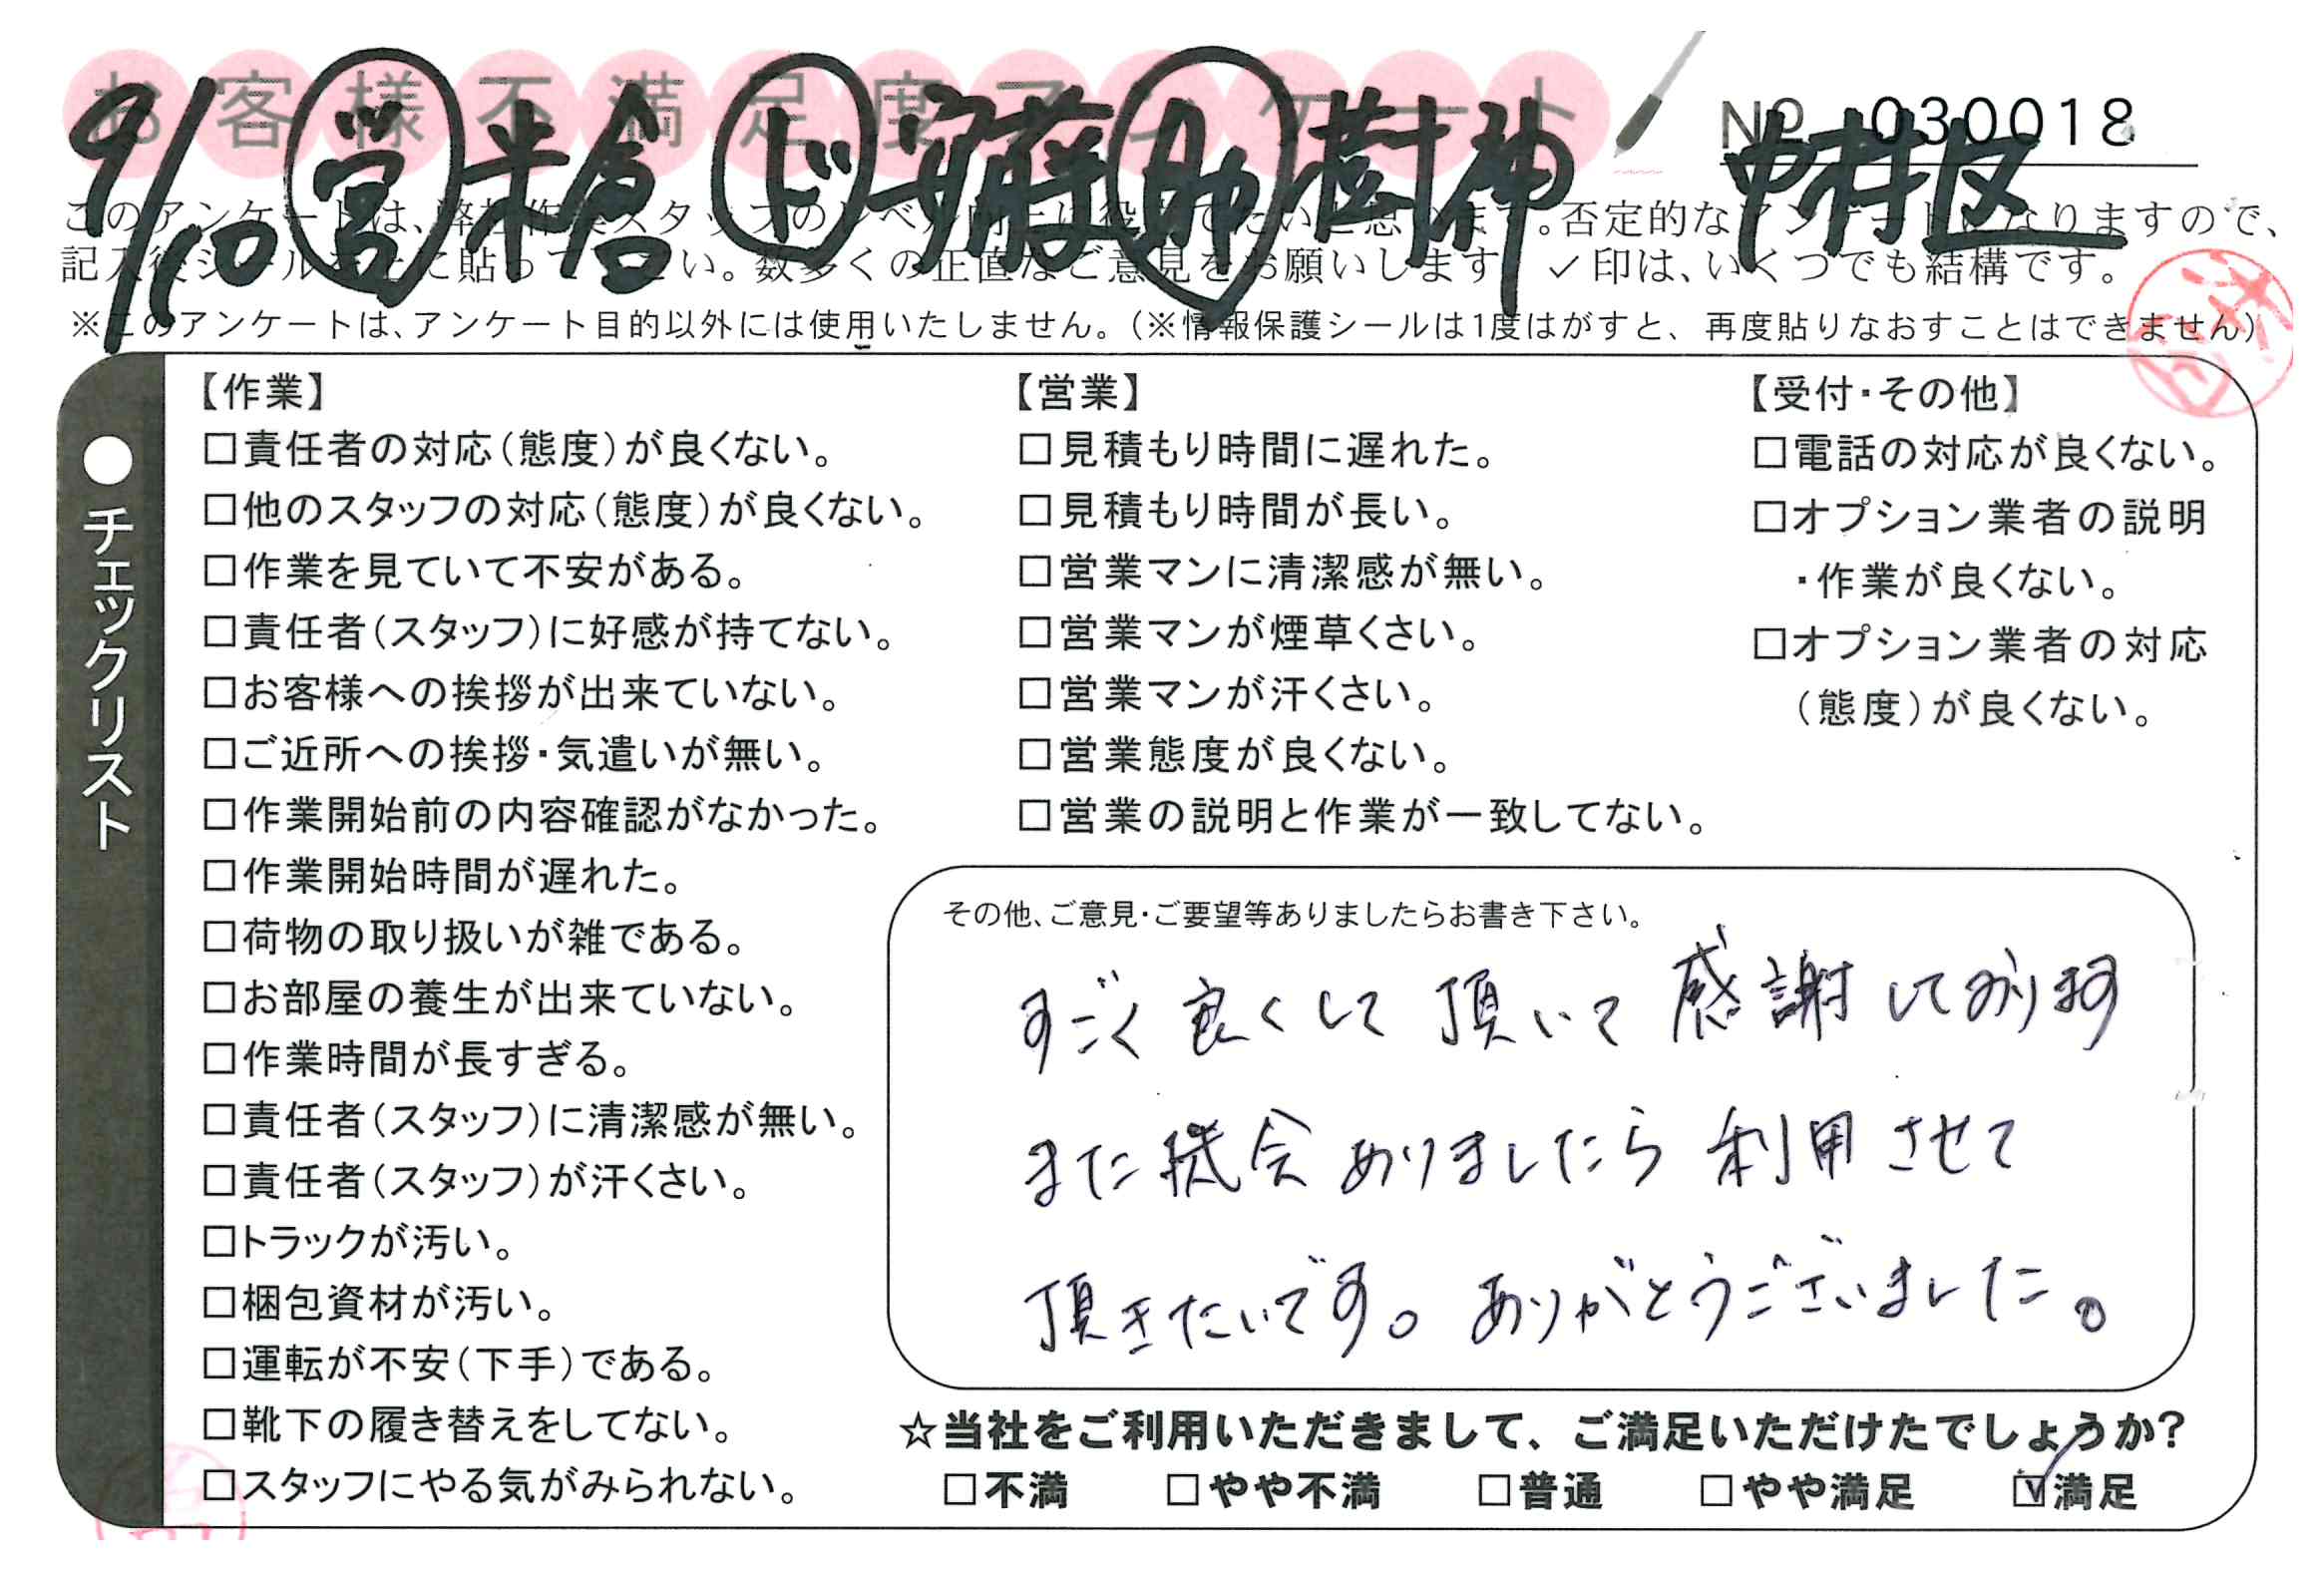 お客様不満足度アンケート
№ 030018
9/10 営 米倉 ド 安藤 助 樹神 中村区
このアンケートは、弊社作業スタッフのレベル向上に役立てたいと思います。否定的なアンケートになりますので、
記入後シールを上に貼って下さい。数多くの正直なご意見をお願いします。✓印は、いくつでも結構です。
※このアンケートは、アンケート目的以外には使用いたしません。（※情報保護シールは1度はがすと、再度貼りなおすことはできません）
●チェックリスト
【作業】
□責任者の対応（態度）が良くない。
□他のスタッフの対応（態度）が良くない。
□作業を見ていて不安がある。
□責任者（スタッフ）に好感が持てない。
□お客様への挨拶が出来ていない。
□ご近所への挨拶・気遣いが無い。
□作業開始前の内容確認がなかった。
□作業開始時間が遅れた。
□荷物の取り扱いが雑である。
□お部屋の養生が出来ていない。
□作業時間が長すぎる。
□責任者（スタッフ）に清潔感が無い。
□責任者（スタッフ）が汗くさい。
□トラックが汚い。
□梱包資材が汚い。
□運転が不安（下手）である。
□靴下の履き替えをしてない。
□スタッフにやる気がみられない。
【営業】
□見積もり時間に遅れた。
□見積もり時間が長い。
□営業マンに清潔感が無い。
□営業マンが煙草くさい。
□営業マンが汗くさい。
□営業態度が良くない。
□営業の説明と作業が一致してない。
【受付・その他】
□電話の対応が良くない。
□オプション業者の説明
・作業が良くない。
□オプション業者の対応
（態度）が良くない。
その他、ご意見・ご要望等ありましたらお書き下さい。
すごく良くして頂いて感謝しております
また機会ありましたら利用させて
頂きたいです。ありがとうございました。
☆当社をご利用いただきまして、ご満足いただけたでしょうか？
□不満 □やや不満 □普通 □やや満足 ☑満足